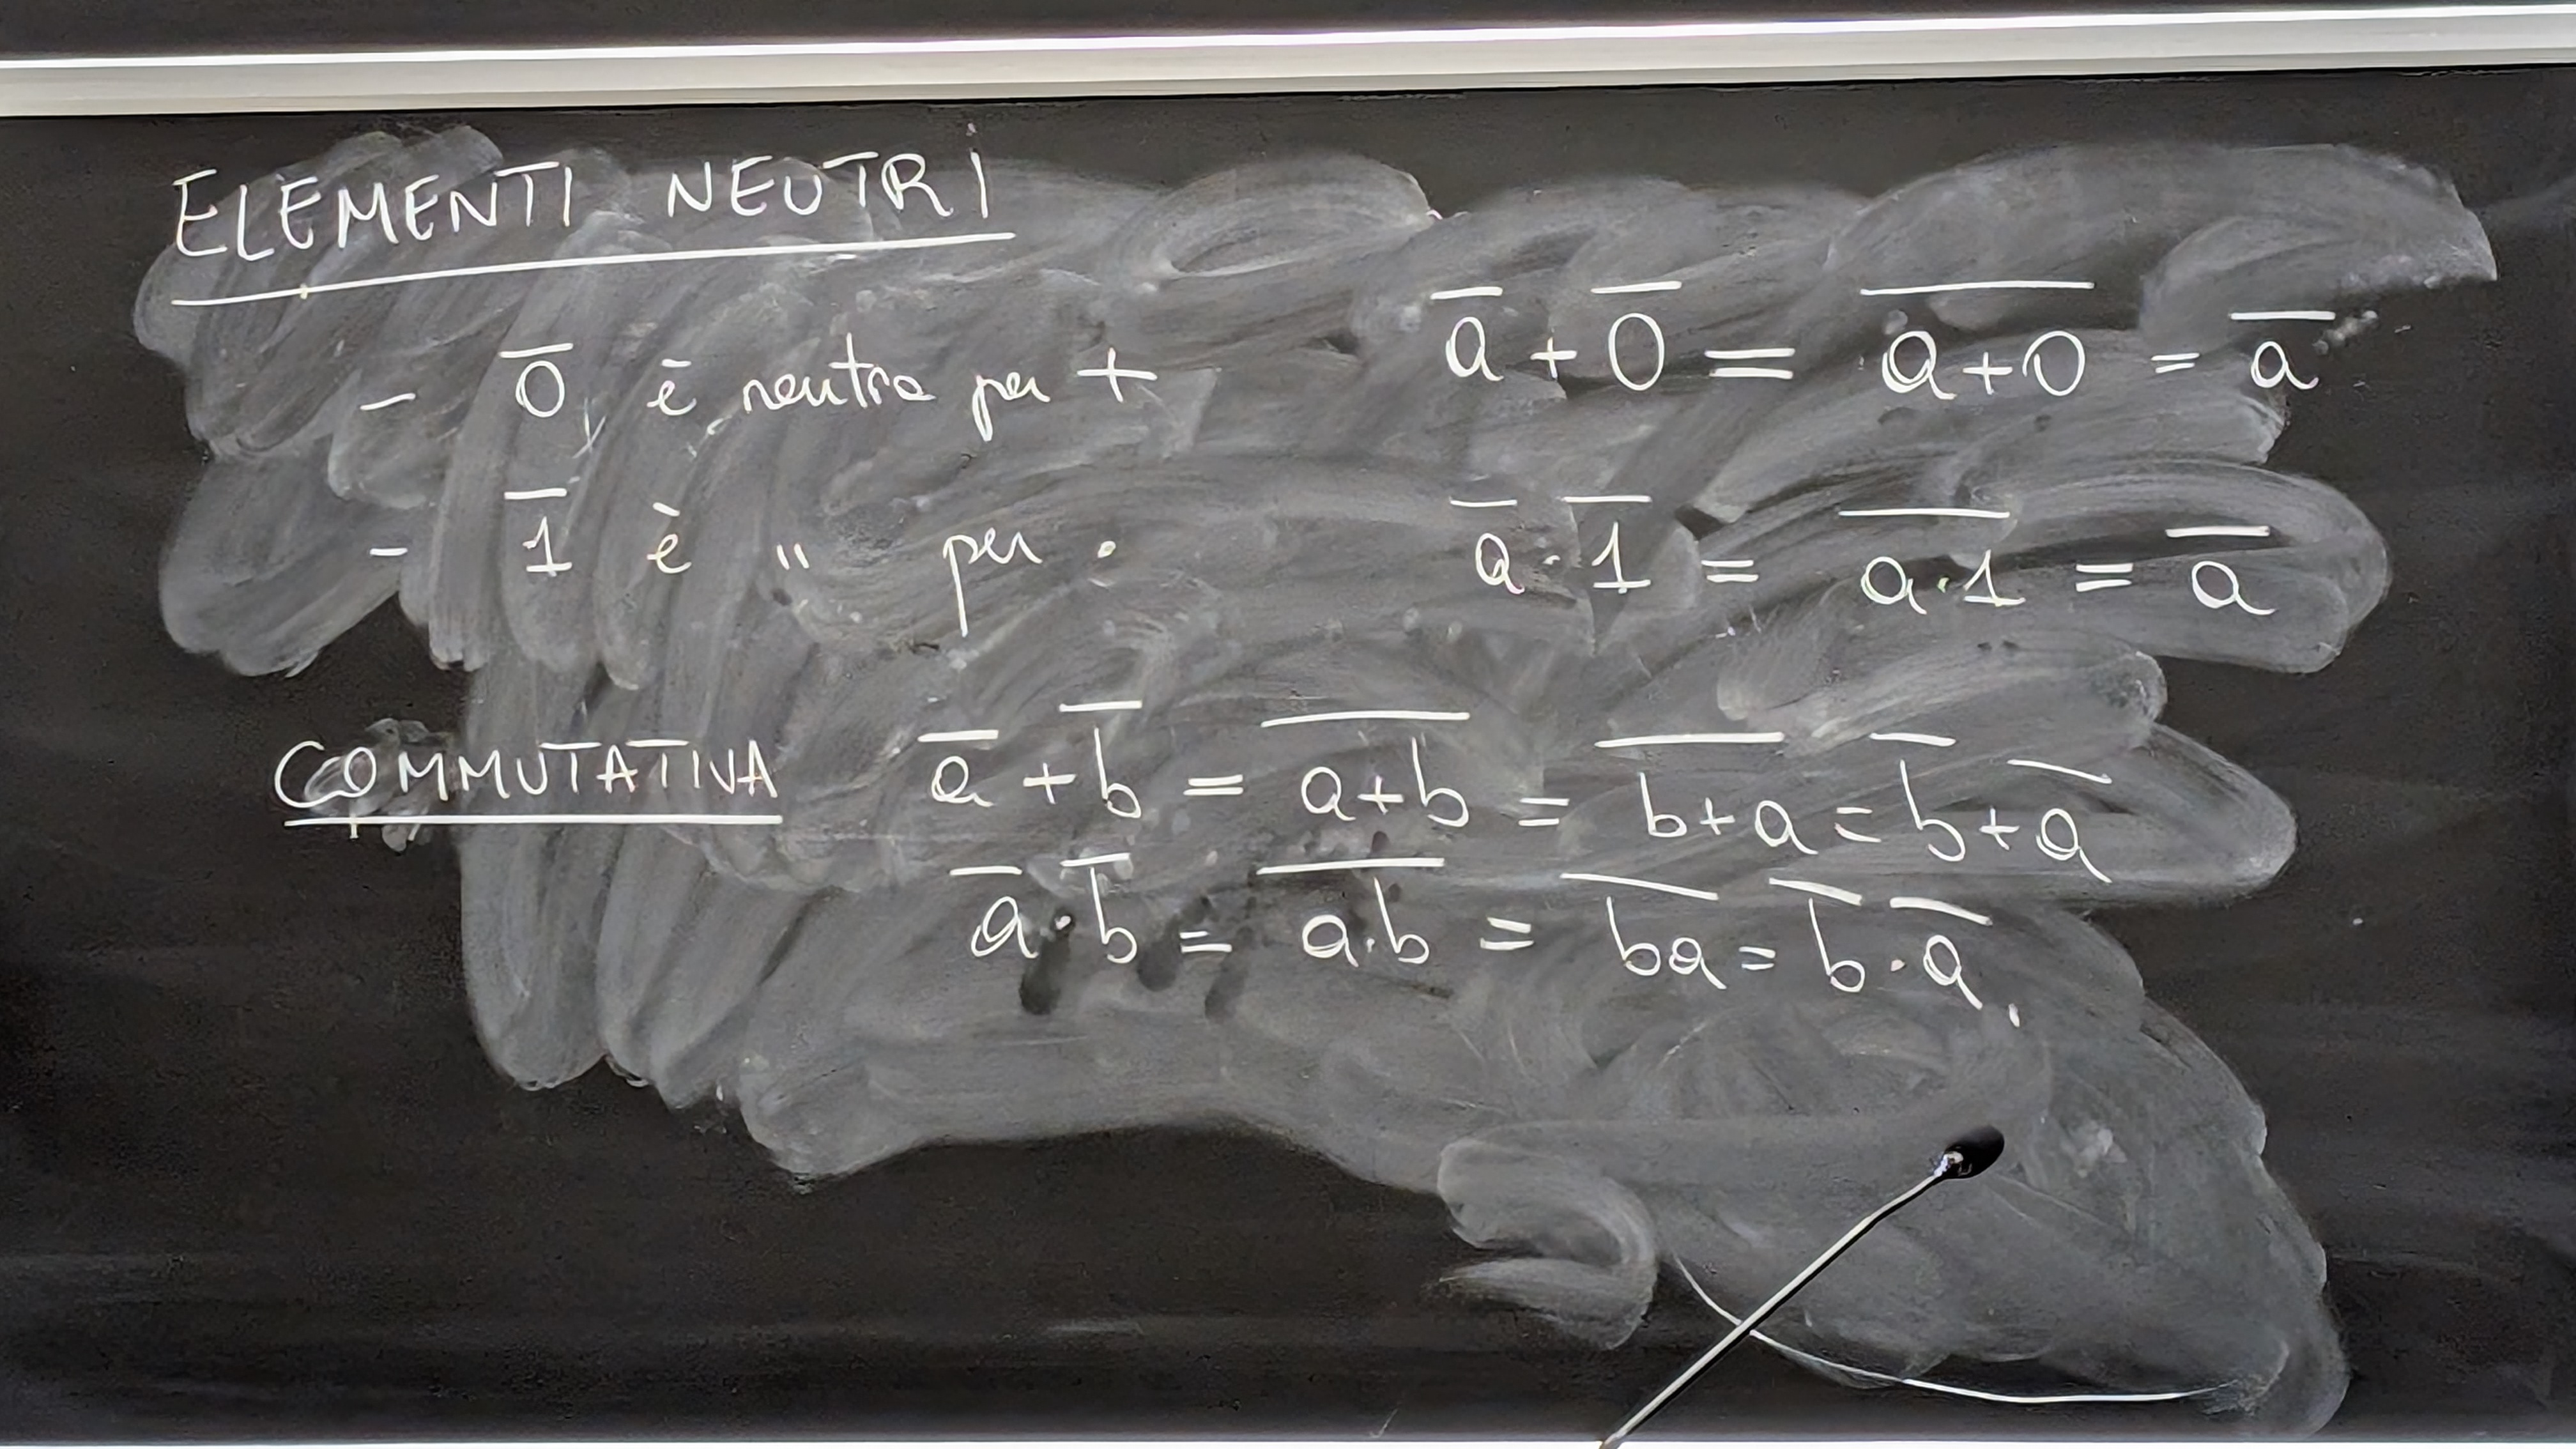 ELEMENTI NEUTRI
- 0̅ è neutro per + a̅ + 0̅ = a̅+̅0̅ = a̅
- 1̅ è " per · a̅ · 1̅ = a̅·̅1̅ = a̅
COMMUTATIVA a̅ + b̅ = a̅+̅b̅ = b̅+̅a̅ = b̅ + a̅
a̅ · b̅ = a̅·̅b̅ = b̅a̅ = b̅ · a̅.